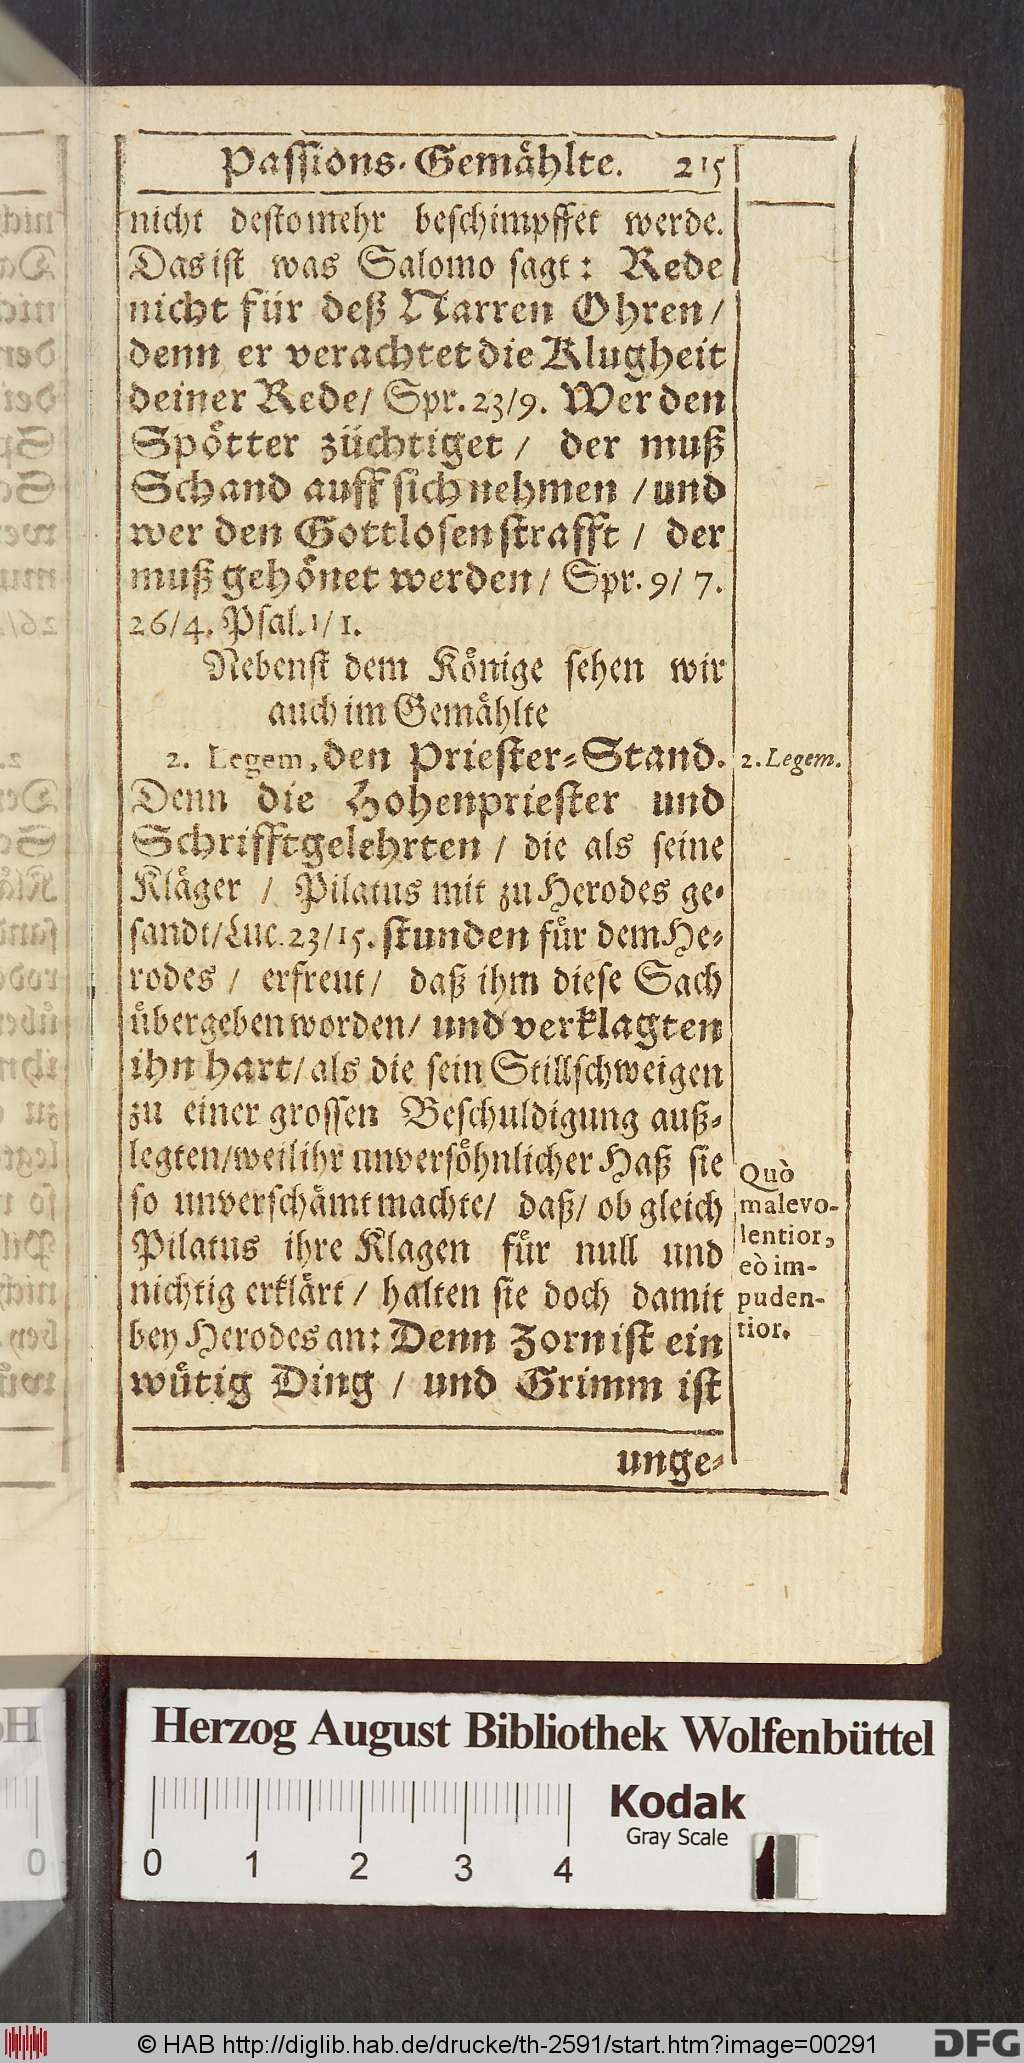 Passions-Gemåhlte. 215
nicht destomehr beschimpffet werde.
Das ist was Salomo sagt: Rede
nicht für deß Narren Ohren/
denn er verachtet die Klugheit
deiner Rede/ Spr. 23/9. Wer den
Spötter züchtiget/ der muß
Schand auff sich nehmen/ und
wer den Gottlosen strafft/ der
muß gehönet werden/ Spr. 9/7.
26/4. Psal. 1/1.
Nebenst dem Könige sehen wir
auch im Gemåhlte
2. Legem, den Priester-Stand.
2. Legem.
Denn die Hohenpriester und
Schrifftgelehrten/ die als seine
Kläger/ Pilatus mit zu Herodes ge-
sandt/ Luc. 23/15. stunden für dem He-
rodes/ erfreut/ daß ihm diese Sach
übergeben worden/ und verklagten
ihn hart/ als die sein Stillschweigen
zu einer grossen Beschuldigung auß-
legten/ weil ihr unversöhnlicher Haß sie
so unverschämt machte/ daß/ ob gleich
Pilatus ihre Klagen für null und
nichtig erklärt/ halten sie doch damit
bey Herodes an: Denn Zorn ist ein
wütig Ding/ und Grimm ist
Quò
malevo-
lentior,
eò im-
puden-
tior.
unge-
Herzog August Bibliothek Wolfenbüttel
Kodak
Gray Scale
0 1 2 3 4
© HAB http://diglib.hab.de/drucke/th-2591/start.htm?image=00291
DFG